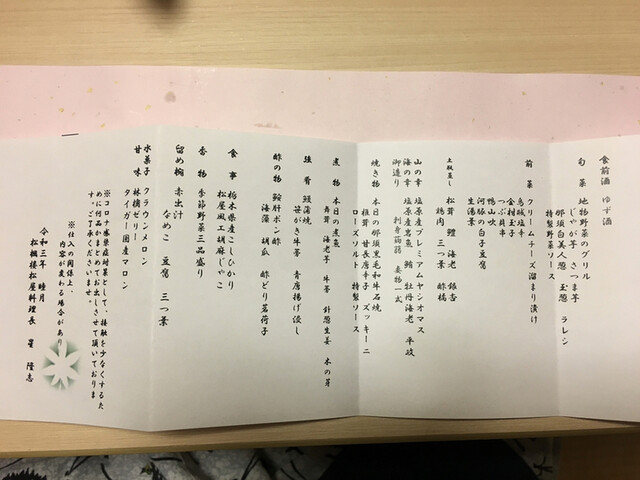 食前酒 ゆず酒
旬菜 地物野菜のグリル
じゃが芋 さつま芋
那須白美人葱 玉葱 ラレシ
特製野菜ソース
前菜 クリームチーズ溜まり漬け
烏賊塩辛
つぶ貝串
金柑玉子
鴨吸山
河豚の白子豆腐
生湯葉
土瓶蒸し 松茸 鱧 海老 銀杏
鶏肉 三つ葉 酢橘
御造り
海の幸 塩原産岩魚 鮪 牡丹海老 平政
山の幸 塩原産プレミアムヤシオマス
刺身蒟蒻 妻物一式
焼き物 本日の那須黒毛和牛石焼
椎茸 甘長唐辛子 ズッキーニ
ローズソルト 特製ソース
煮物 本日の煮魚
舞茸 海老芋 牛蒡 針葱生姜 木の芽
強肴 鰻蒲焼
笹がき牛蒡 青唐揚げ浸し
酢の物 鮟肝ポン酢
海藻 胡瓜 酢どり茗荷子
食事 栃木県産こしひかり
松屋風工胡麻じゃこ
香物 季節野菜三品盛り
留め椀 赤出汁
なめこ 豆腐 三つ葉
水菓子 クラウンメロン
甘味 林檎ゼリー
タイガー国産マロン
※コロナ感染症対策として、接触を少なくするた
め、何品かまとめてお出しさせて頂いておりま
す。ご了承くださいませ。
※仕入の関係上、
内容が変わる場合があり
令和三年 睦月
松楓楼松屋料理長 星 隆志